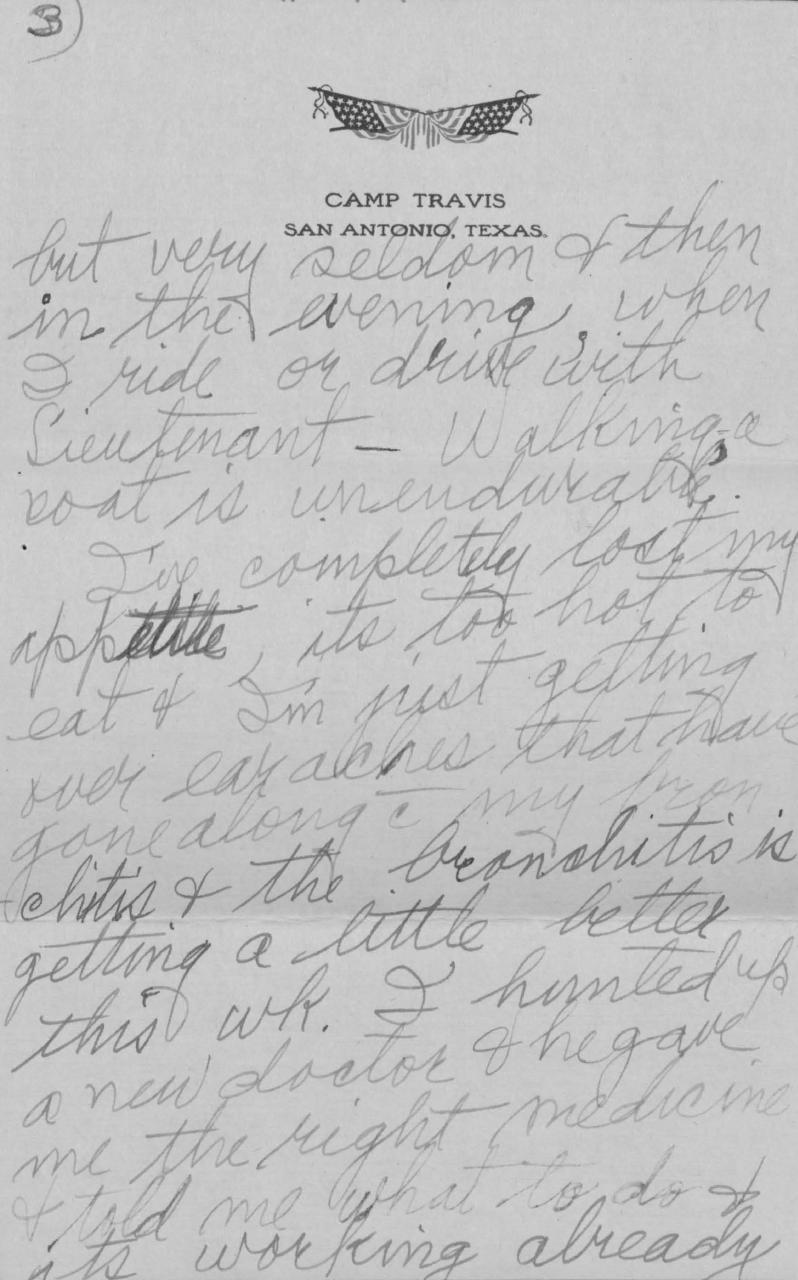 3
CAMP TRAVIS
SAN ANTONIO, TEXAS.
but very seldom & then
in the evening, when
I ride or drive with
Lieutenant – Walking, a
coat is unendurable.
I've completely lost my
appetite, its too hot to
eat & I'm just getting
over ear aches that have
gone along c̄ my bron
chitis & the bronchitis is
getting a little better
this wk. I hunted up
a new doctor & he gave
me the right medicine
& told me what to do &
its working already